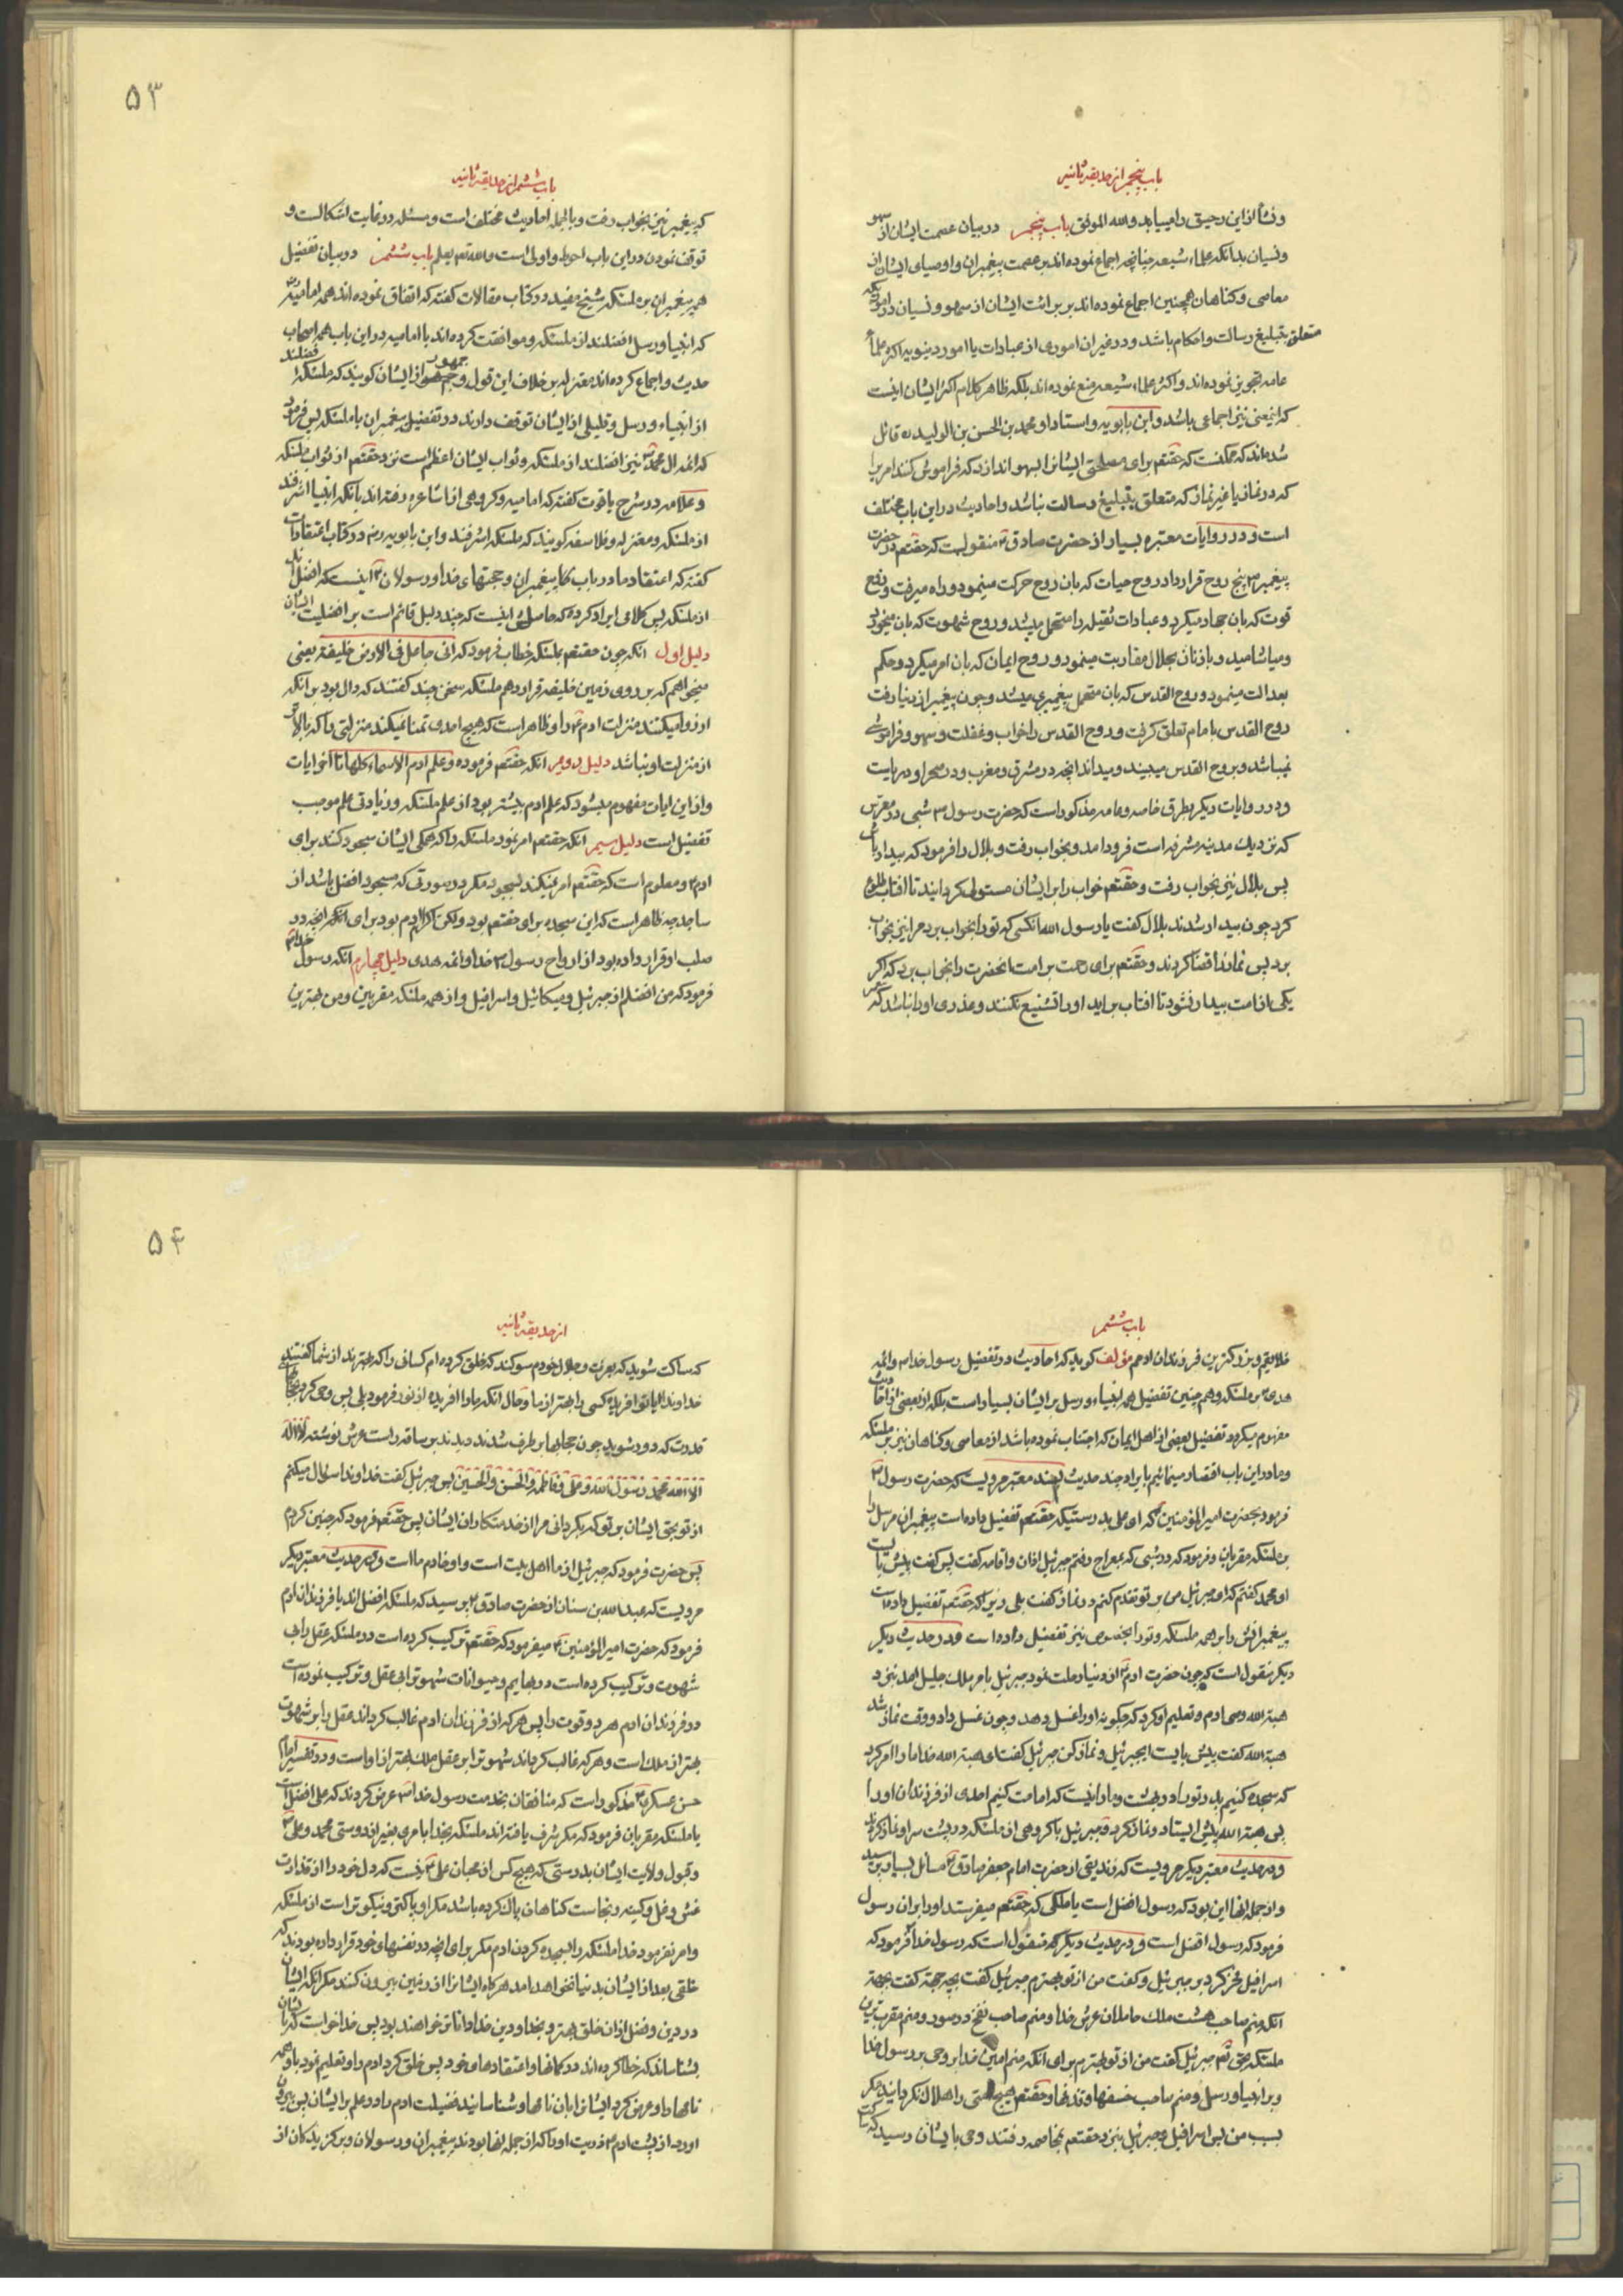 باب پنجم از حدیقه ثانیه
و نشأ از این رحیق را میباید والله الموفق باب پنجم در بیان عصمت ایشان از سهو
و نسیان بدانکه علماء شیعه چنانچه اجماع نموده‌اند بر عصمت پیغمبران و اوصیای ایشان از
معاصی و کناهان همچنین اجماع نموده‌اند بر برائت ایشان از سهو و نسیان در امور یکه
متعلق بتبلیغ رسالت و احکام باشد و در غیر ان اموری از عبادات یا امور دینویه اکثر علماء
عامه تجویز نموده‌اند و اکثر علماء شیعه منع نموده‌اند بلکه ظاهر کلام اکثر ایشان اینست
که اینمعنی نیز اجماعی باشد و ابن بابویه و استاد او محمد بن الحسن بن الولید ره قائل
شده‌اند که ممکنست که حقتعم برای مصلحتی ایشانرا بسهو اندازد که فراموش کنند امریرا
که در نماز یا غیر نماز که متعلق بتبلیغ رسالت نباشد و احادیث در این باب مختلف
است و در روایات معتبره بسیار از حضرت صادق ع منقولست که حقتعم در حضرت
پیغمبر ص پنج روح قرار داد روح حیات که بان روح حرکت مینمود و راه میرفت و روح
قوت که بان جهاد میکرد و عبادات ثقیله را متحمل میشد و روح شهوت که بان میخورد
و میاشامید و با زنان بحلال مقاربت مینمود و روح ایمان که بان امر میکرد و حکم
بعدالت مینمود و روح القدس که بان متحمل پیغمبری میشد و چون پیغمبر از دنیا رفت
روح القدس بامام تعلق کرفت و روح القدس را خواب و غفلت و سهو و فراموشی
نمیباشد و بروح القدس میبیند و میداند انچه در مشرق و مغرب و در صحرا و دریاست
و در روایات دیکر بطرق خاصه و عامه مذکور است که حضرت رسول ص شبی در معرس
که نزدیك مدینه مشرفه است فرود امد و بخواب رفت و بلال را فرمود که بیدار باش
پس بلال نیز بخواب رفت و حقتعم خواب را بر ایشان مستولی کردانید تا افتاب طلوع
کرد چون بیدار شدند بلال کفت یا رسول الله انکسی که تو را بخواب برد مرا نیز بخواب
برد پس نماز را قضا کردند و حقتعم برای رحمت بر امت انحضرت را بخواب برد که اکر
یکی از امت بیدار نشود تا افتاب بر اید او را تشنیع نکنند و عذری او را باشد که
باب ششم از حدیقه ثانیه
۵۳
که پیغمبر نیز بخواب رفت و بالجمله احادیث مختلف است و مسئله در نهایت اشکالست و
توقف نمودن در این باب احوط و اولی است والله تعم یعلم باب ششم در بیان تفضیل
همه پیغمبران بر ملئکه شیخ مفید در کتاب مقالات کفته که اتفاق نموده‌اند همه امامیه
که انبیا و رسل افضلند از ملئکه و موافقت کرده‌اند با امامیه در این باب همه اصحاب
حدیث و اجماع کرده‌اند معتزله بر خلاف این قول و جمهور از ایشان کویند که ملئکه افضلند
از انبیاء و رسل و قلیلی از ایشان توقف دارند در تفضیل پیغمبران یا ملئکه پس فرموده
که ائمه ال محمد ص نیز افضلند از ملئکه و ثواب ایشان اعظم است نزد حقتعم از ثواب ملئکه
و علامه در شرح یاقوت کفته که امامیه و کروهی از اشاعره رفته‌اند بانکه انبیا اشرفند
از ملئکه و معتزله و فلاسفه کویند که ملئکه اشرفند و ابن بابویه ره در کتاب اعتقادات
کفته که اعتقاد ما در باب پیغمبران و حجتهای خدا و رسولان ع اینست که افضل‌اند
از ملئکه پس کلامی ایراد کرده که حاصلش اینست که چند دلیل قائم است بر افضلیت ایشان
دلیل اول انکه چون حقتعم بملئکه خطاب فرمود که انی جاعل فی الارض خلیفة یعنی
میخواهم که بر روی زمین خلیفه قرار دهم ملئکه سخنی چند کفتند که دال بود بر انکه
ارزو میکنند منزلت ادم ع را و ظاهر است که هیچ احدی تمنا نمیکند منزلتی را که بالاتر
از منزلت او نباشد دلیل دویم انکه حقتعم فرموده و علم ادم الاسماء کلها تا اخر ایات
و از این ایات مفهوم میشود که علم ادم بیشتر بود از علم ملئکه و زیادتی علم موجب
تفضیل است دلیل سیم انکه حقتعم امر نمود ملئکه را که همکی ایشان سجود کنند برای
ادم ع و معلوم است که حقتعم امر نمیکند بسجود مکر در صورتی که مسجود افضل باشد از
ساجد چه ظاهر است که این سجده برای حقتعم بود ولیکن اکرام ادم بود برای انکه انچه در
صلب او قرار داده بود از ارواح رسول ص خدا و ائمه هدی دلیل چهارم انکه رسول خدا ص
فرمود که من افضلم از جبرئیل و میکائیل و اسرافیل و از همه ملئکه مقربین و من بهترین
باب ششم
خلایقم و بزرکترین فرزندان ادمم مؤلف کوید که احادیث در تفضیل رسول خدا ص و ائمه
هدی ع بر ملئکه و هم چنین تفضیل همه انبیاء و رسل بر ایشان بسیار است بلکه از بعضی از احادیث
مفهوم میکردد تفضیل بعضی از اهل ایمان که اجتناب نموده باشد از معاصی و کناهان نیز بر ملئکه
و ما در این باب اقتصار مینمائیم بایراد چند حدیث بسند معتبر مرویست که حضرت رسول ص
فرمود بحضرت امیرالمؤمنین ع که ای علی بدرستیکه حقتعم تفضیل داده است پیغمبران مرسل را
بر ملئکه مقربان و فرمود که در شبی که بمعراج رفتم جبرئیل اذان و اقامه کفت پس کفت پیش بایست
ای محمد کفتم که ای جبرئیل من بر تو تقدم کنم در نماز کفت بلی زیرا که حقتعم تفضیل داده است
پیغمبرانش را بر همه ملئکه و تو را بخصوص نیز تفضیل داده است و در حدیث دیکر
دیکر منقول است که چون حضرت ادم ع از دنیا رحلت نمود جبرئیل بامر ملك جلیل امد نزد
هبة الله وصی ادم و تعلیم او کرد که چکونه او را غسل دهد و چون غسل داد و وقت نماز شد
هبة الله کفت پیش بایست ایجبرئیل و نماز کن جبرئیل کفت ای هبة الله خدا ما را امر کرد
که سجده کنیم پدر تو را در بهشت و ما را نیست که امامت کنیم احدی از فرزندان او را
پس هبة الله پیش ایستاد و نماز کرد و جبرئیل با کروهی از ملئکه در پشت سر او نماز کردند
و در حدیث معتبر دیکر مرویست که زندیقی از حضرت امام جعفر صادق ع مسائل بسیار پرسید
و از جمله انها این بود که رسول افضل است یا ملکی که حقتعم میفرستد او را بر ان رسول
فرمود که رسول افضل است و در حدیث دیکر منقول است که رسول خدا ص فرمود که
اسرافیل فخر کرد بر جبرئیل و کفت من از تو بهترم جبرئیل کفت بچه جهة کفت بجهة
انکه منم صاحب هشت ملك حاملان عرش خدا و منم صاحب نفخ در صور و منم مقرب‌ترین
ملئکه بحق تعم جبرئیل کفت من از تو بهترم برای انکه منم امین خدا بر وحی بر رسول خدا
و بر انبیا و رسل و منم صاحب خسفها و قذفها و حقتعم هیچ امتی را هلاك نکردانید مکر
بسبب من پس اسرافیل و جبرئیل بنزد حقتعم بمخاصمه رفتند وحی بایشان رسید که
از حدیقه ثانیه
۵۴
که ساکت شوید که بعزت و جلال خودم سوکند که خلق کرده‌ام کسانی را که بهترند از شما کفتند
خداوندا ایا تو افریدۀ کسی را بهتر از ما و حال انکه ما را افریده از نور فرمود بلی پس وحی کرد بحجابها
قدرت که دور شوید چون حجابها بر طرف شدند دیدند بر ساقه راست عرش نوشته لا اله
الا الله محمد رسول الله و علی و فاطمه و الحسن و الحسین پس جبرئیل کفت خداوندا سؤال میکنم
از تو بحق ایشان بر تو که بکردانی مرا از خدمتکاران ایشان پس حقتعم فرمود که چنین کردم
پس حضرت فرمود که جبرئیل از ما اهل بیت است و او خادم ما است و در حدیث معتبر دیکر
مرویست که عبدالله بن سنان از حضرت صادق ع پرسید که ملئکه افضل‌اند یا فرزندان ادم
فرمود که حضرت امیرالمؤمنین ع میفرمود که حقتعم ترکیب کرده است در ملئکه عقل را بی
شهوت و ترکیب کرده است در بهایم و حیوانات شهوترا بی عقل و ترکیب نموده است
در فرزندان ادم هر دو قوت را پس هر که از فرزندان ادم غالب کرداند عقل را بر شهوت
بهتر از ملك است و هر که غالب کرداند شهوترا بر عقل بهایم بهتر از او است و در تفسیر امام
حسن عسکری ع مذکور است که منافقان بخدمت رسول خدا ص عرض کردند که علی افضل است
یا ملئکه مقربان فرمود که مکر شرف یافته‌اند ملئکه بخدا بامری بغیر از دوستی محمد و علی ع
و قبول ولایت ایشان بدرستی که هیچ کس از محبان علی ع نیست که دل خود را از قذارت
غش و غل و کینه و نجاست کناهان پاك کرده باشد مکر او پاکتر و نیکوتر است از ملئکه
و امر نفرمود خدا ملئکه را بسجده کردن ادم مکر برای انچه در نفسهای خود قرار داده بودند که
خلقی بعد از ایشان بدنیا نخواهد امد هر کاه ایشانرا از زمین بیرون کنند مکر انکه ایشان
در دین و فضل از ان خلق بهتر و بخدا و دین خدا داناتر خواهند بود پس خدا خواست که بایشان
بشناساند که خطا کرده‌اند در کمانها و اعتقادهای خود پس خلق کرد ادم را و تعلیم نمود باو همه
نامها را و عرض کرد ایشانرا بان نامها و شناسانید فضیلت ادم را در علم بر ایشان پس بیرون
اورد از پشت ادم ع ذریت او را که از جمله انها بودند پیغمبران و رسولان و برکزیدکان از